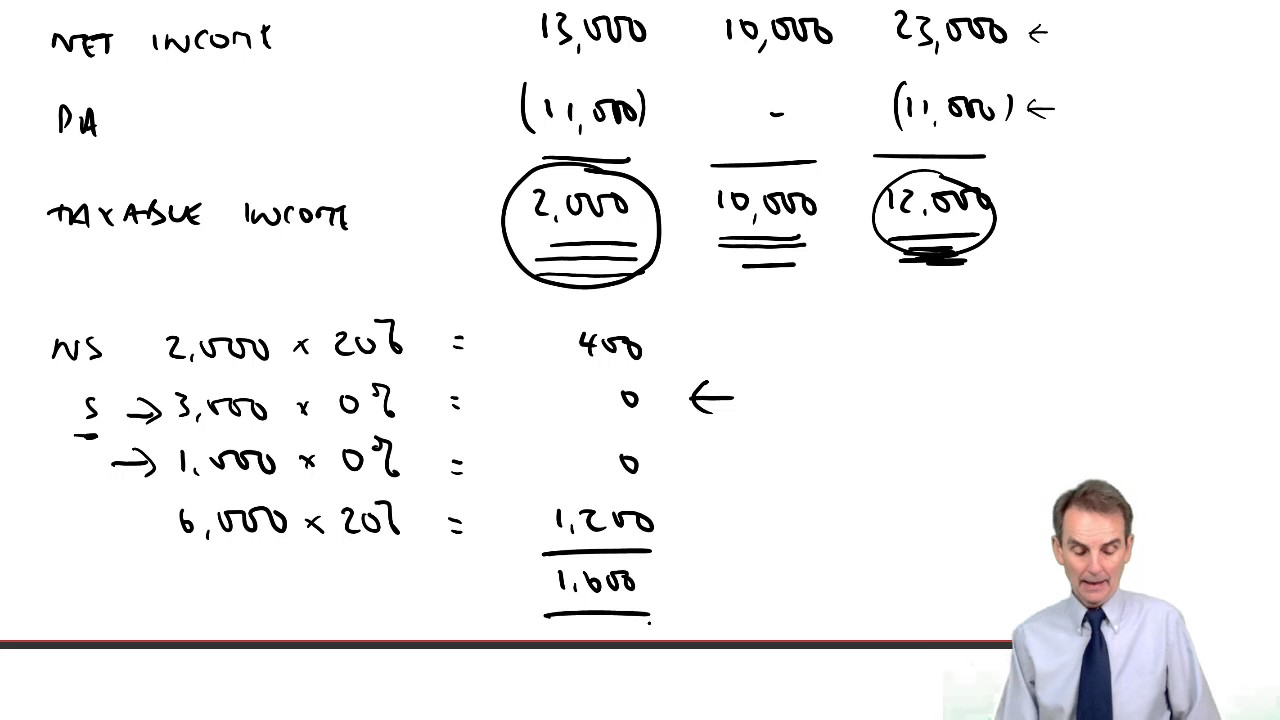 NET INCOME 13,000 10,000 23,000 ←
PA (11,000) - (11,000) ←
TAXABLE INCOME 2,000 10,000 12,000
NS 2,000 × 20% = 400
S → 3,000 × 0% = 0 ←
→ 1,000 × 0% = 0
6,000 × 20% = 1,200
1,600